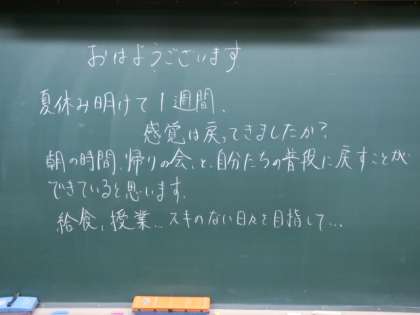 おはようございます
夏休み明けて1週間.
感覚は戻ってきましたか?
朝の時間、帰りの会、と、自分たちの普段に戻すことが
できていると思います.
給食、授業… スキのない日々を目指して…